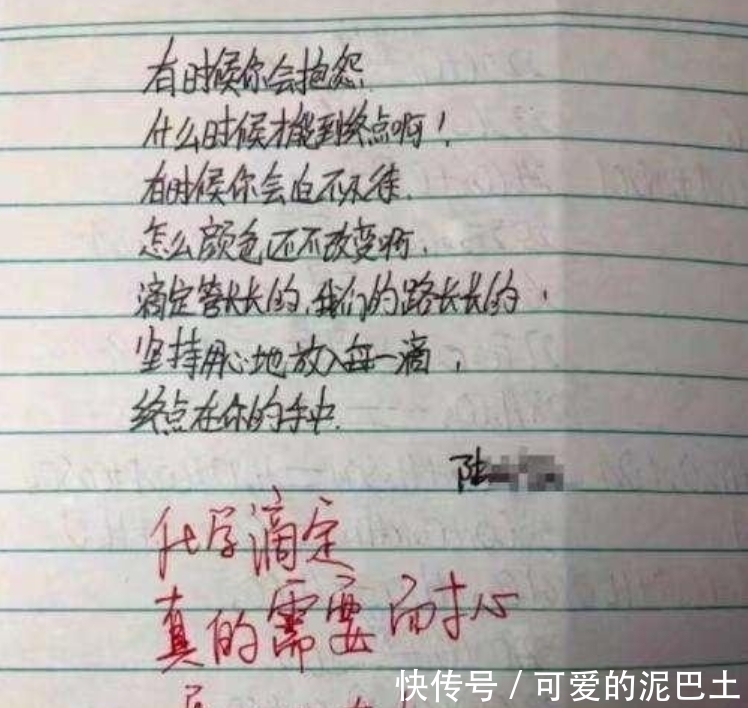 有时候你会抱怨
什么时候才能到终点啊！
有时候你会迫不及待.
怎么颜色还不改变啊.
滴定管长长的,我们的路长长的,
坚持用心地放入每一滴,
终点在你的手中.
陆
化学滴定
真的需要耐心
快传号 / 可爱的泥巴土